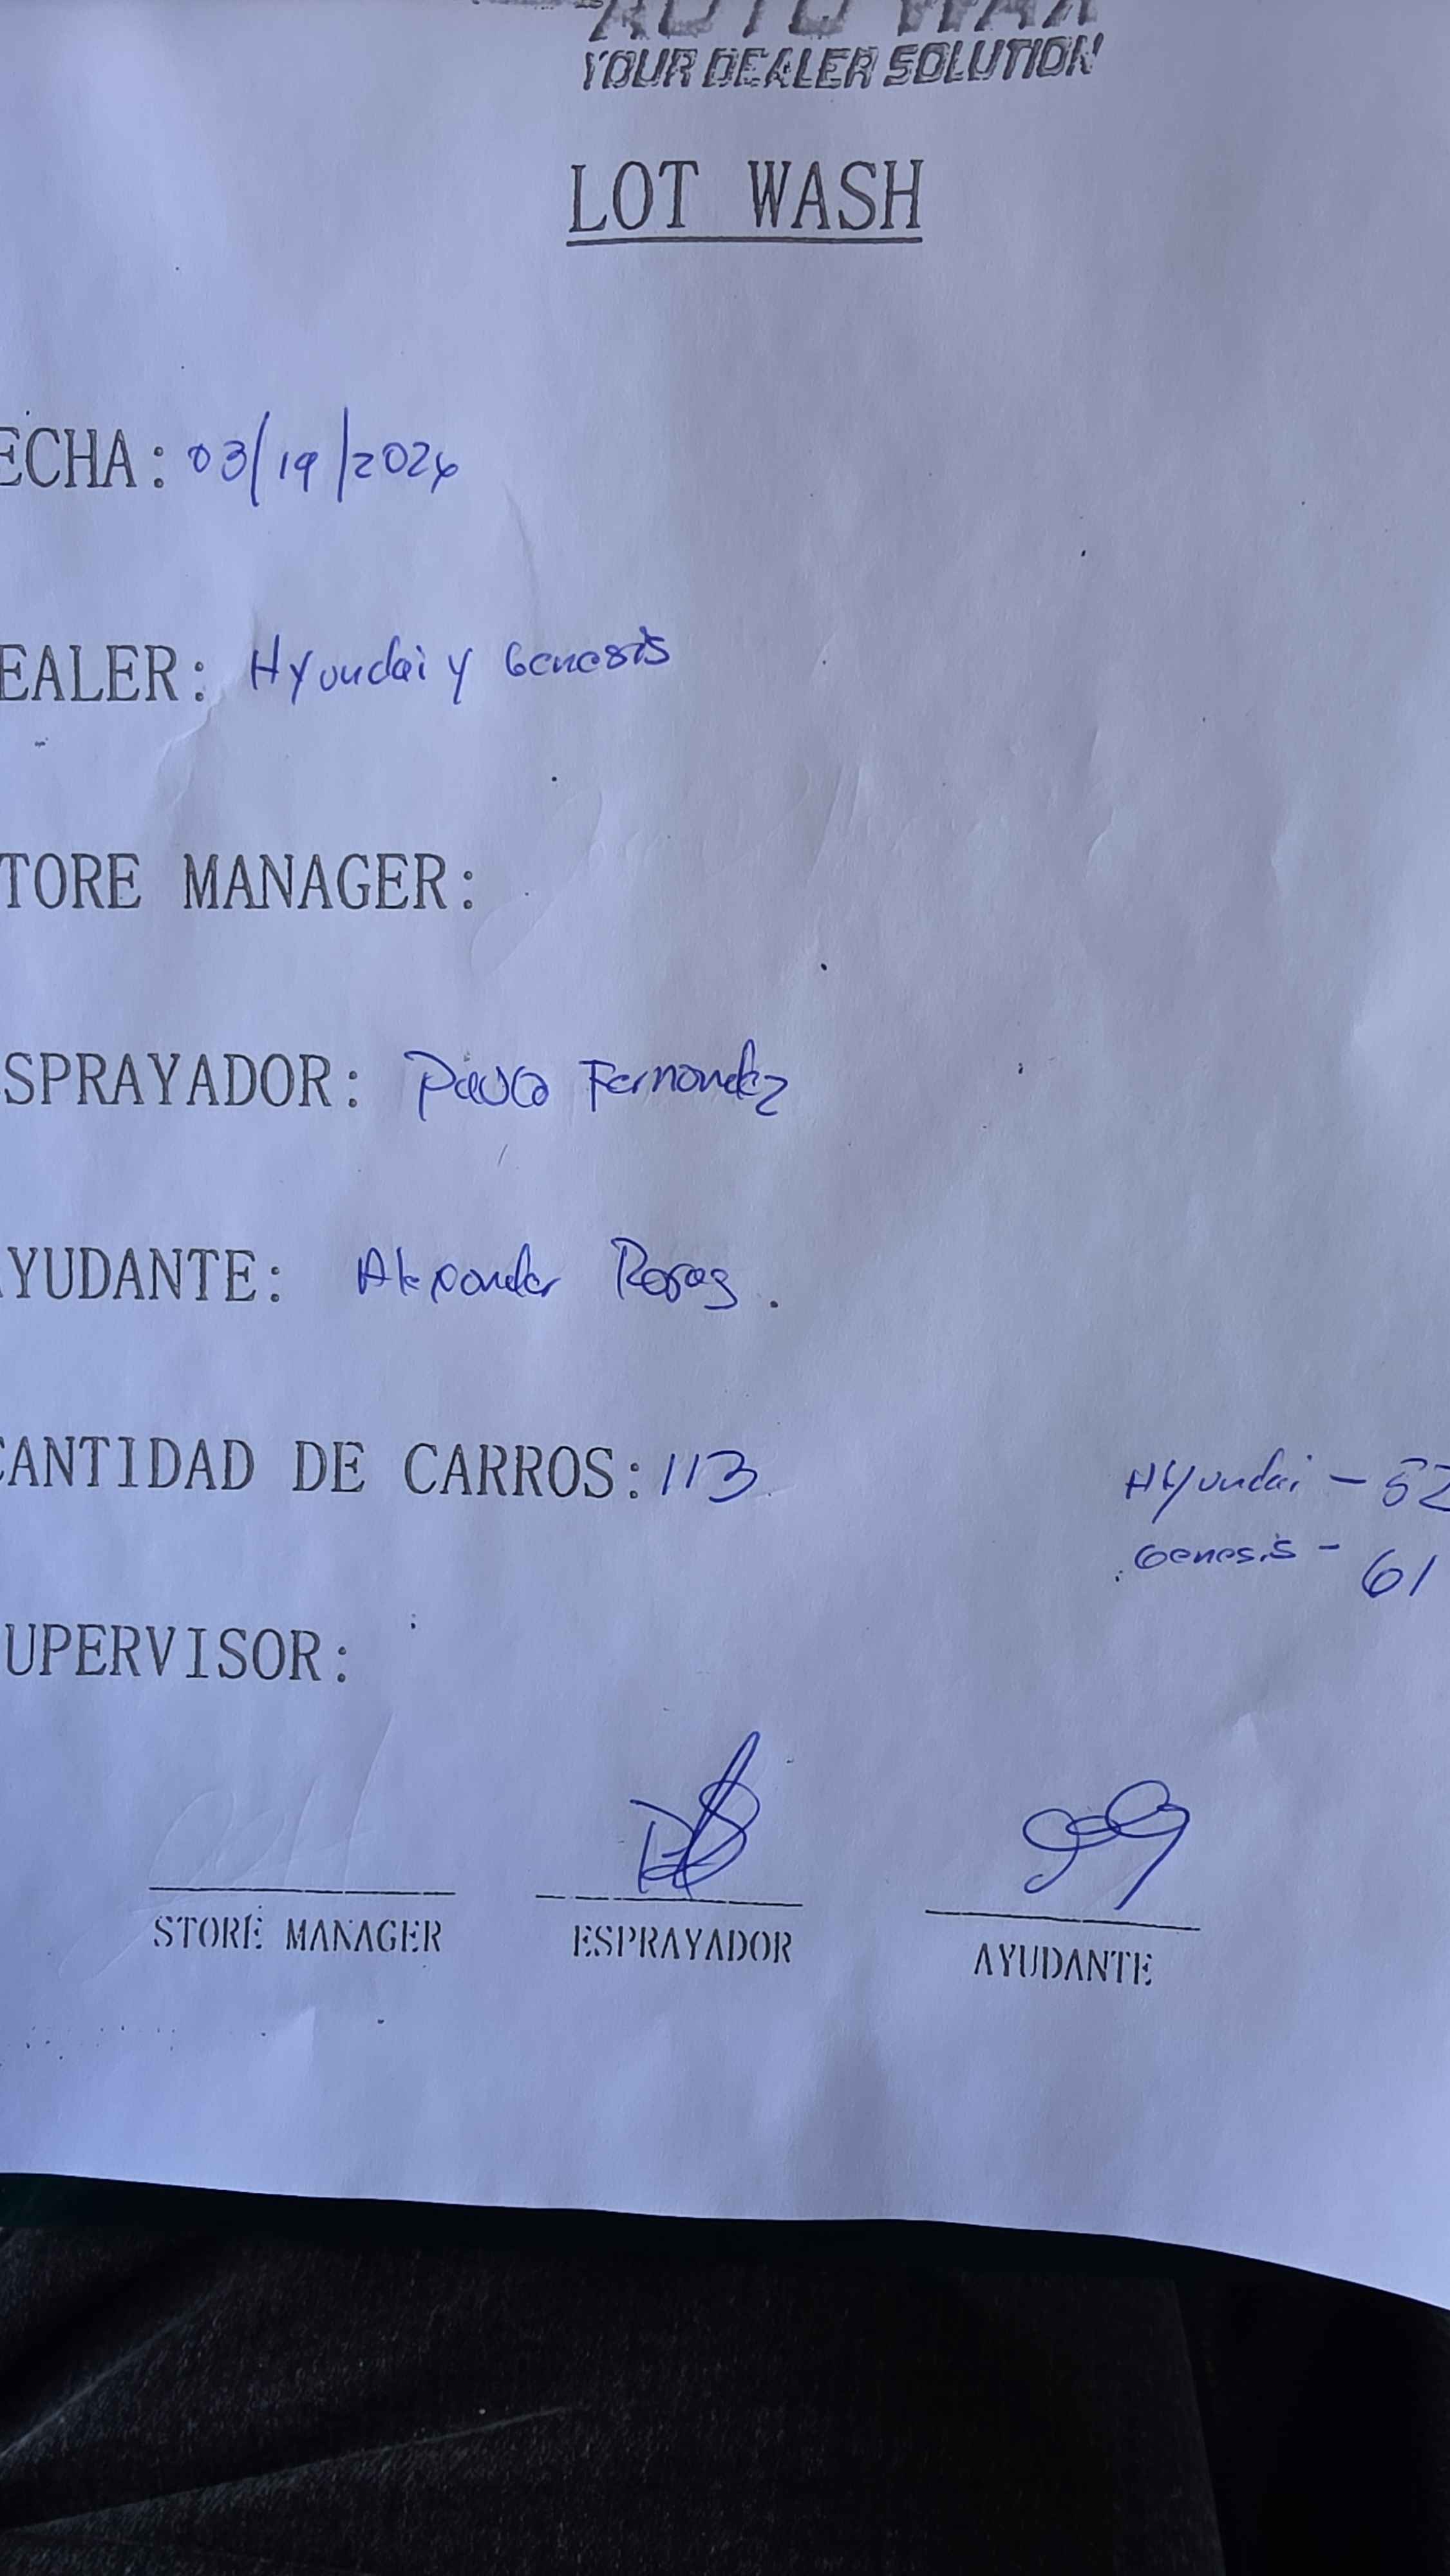 AUTO WAX
YOUR DEALER SOLUTION
LOT WASH
ECHA: 03/19/2026
EALER: Hyundai y Genesis
TORE MANAGER:
SPRAYADOR: Fernandez
YUDANTE: Alexander Rosas.
CANTIDAD DE CARROS: 113
Hyundai - 52
Genesis - 61
UPERVISOR:
STORE MANAGER ESPRAYADOR AYUDANTE